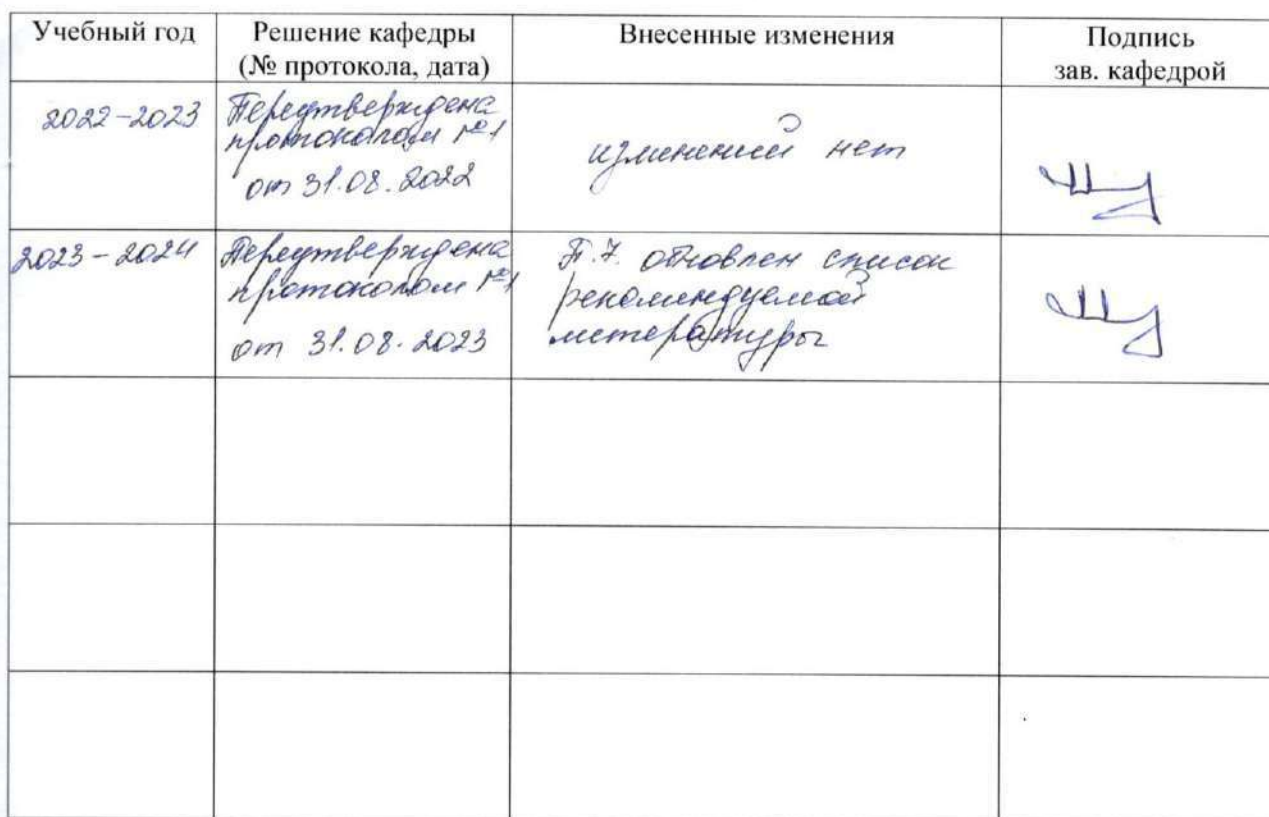 Учебный год
Решение кафедры
(№ протокола, дата)
Внесенные изменения
Подпись
зав. кафедрой
2022-2023
Переутверждена
протоколом №1
от 31.08.2022
изменений нет
2023-2024
Переутверждена
протоколом №1
от 31.08.2023
П.7. обновлен список
рекомендуемой
литературы